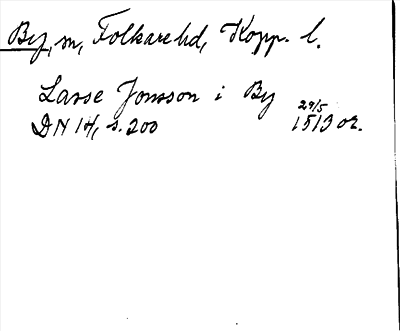 By, sn, Folkare hd, Kopp. l.
Lasse Jonsson i By
DN 14, s. 200 29/5 1513 or.